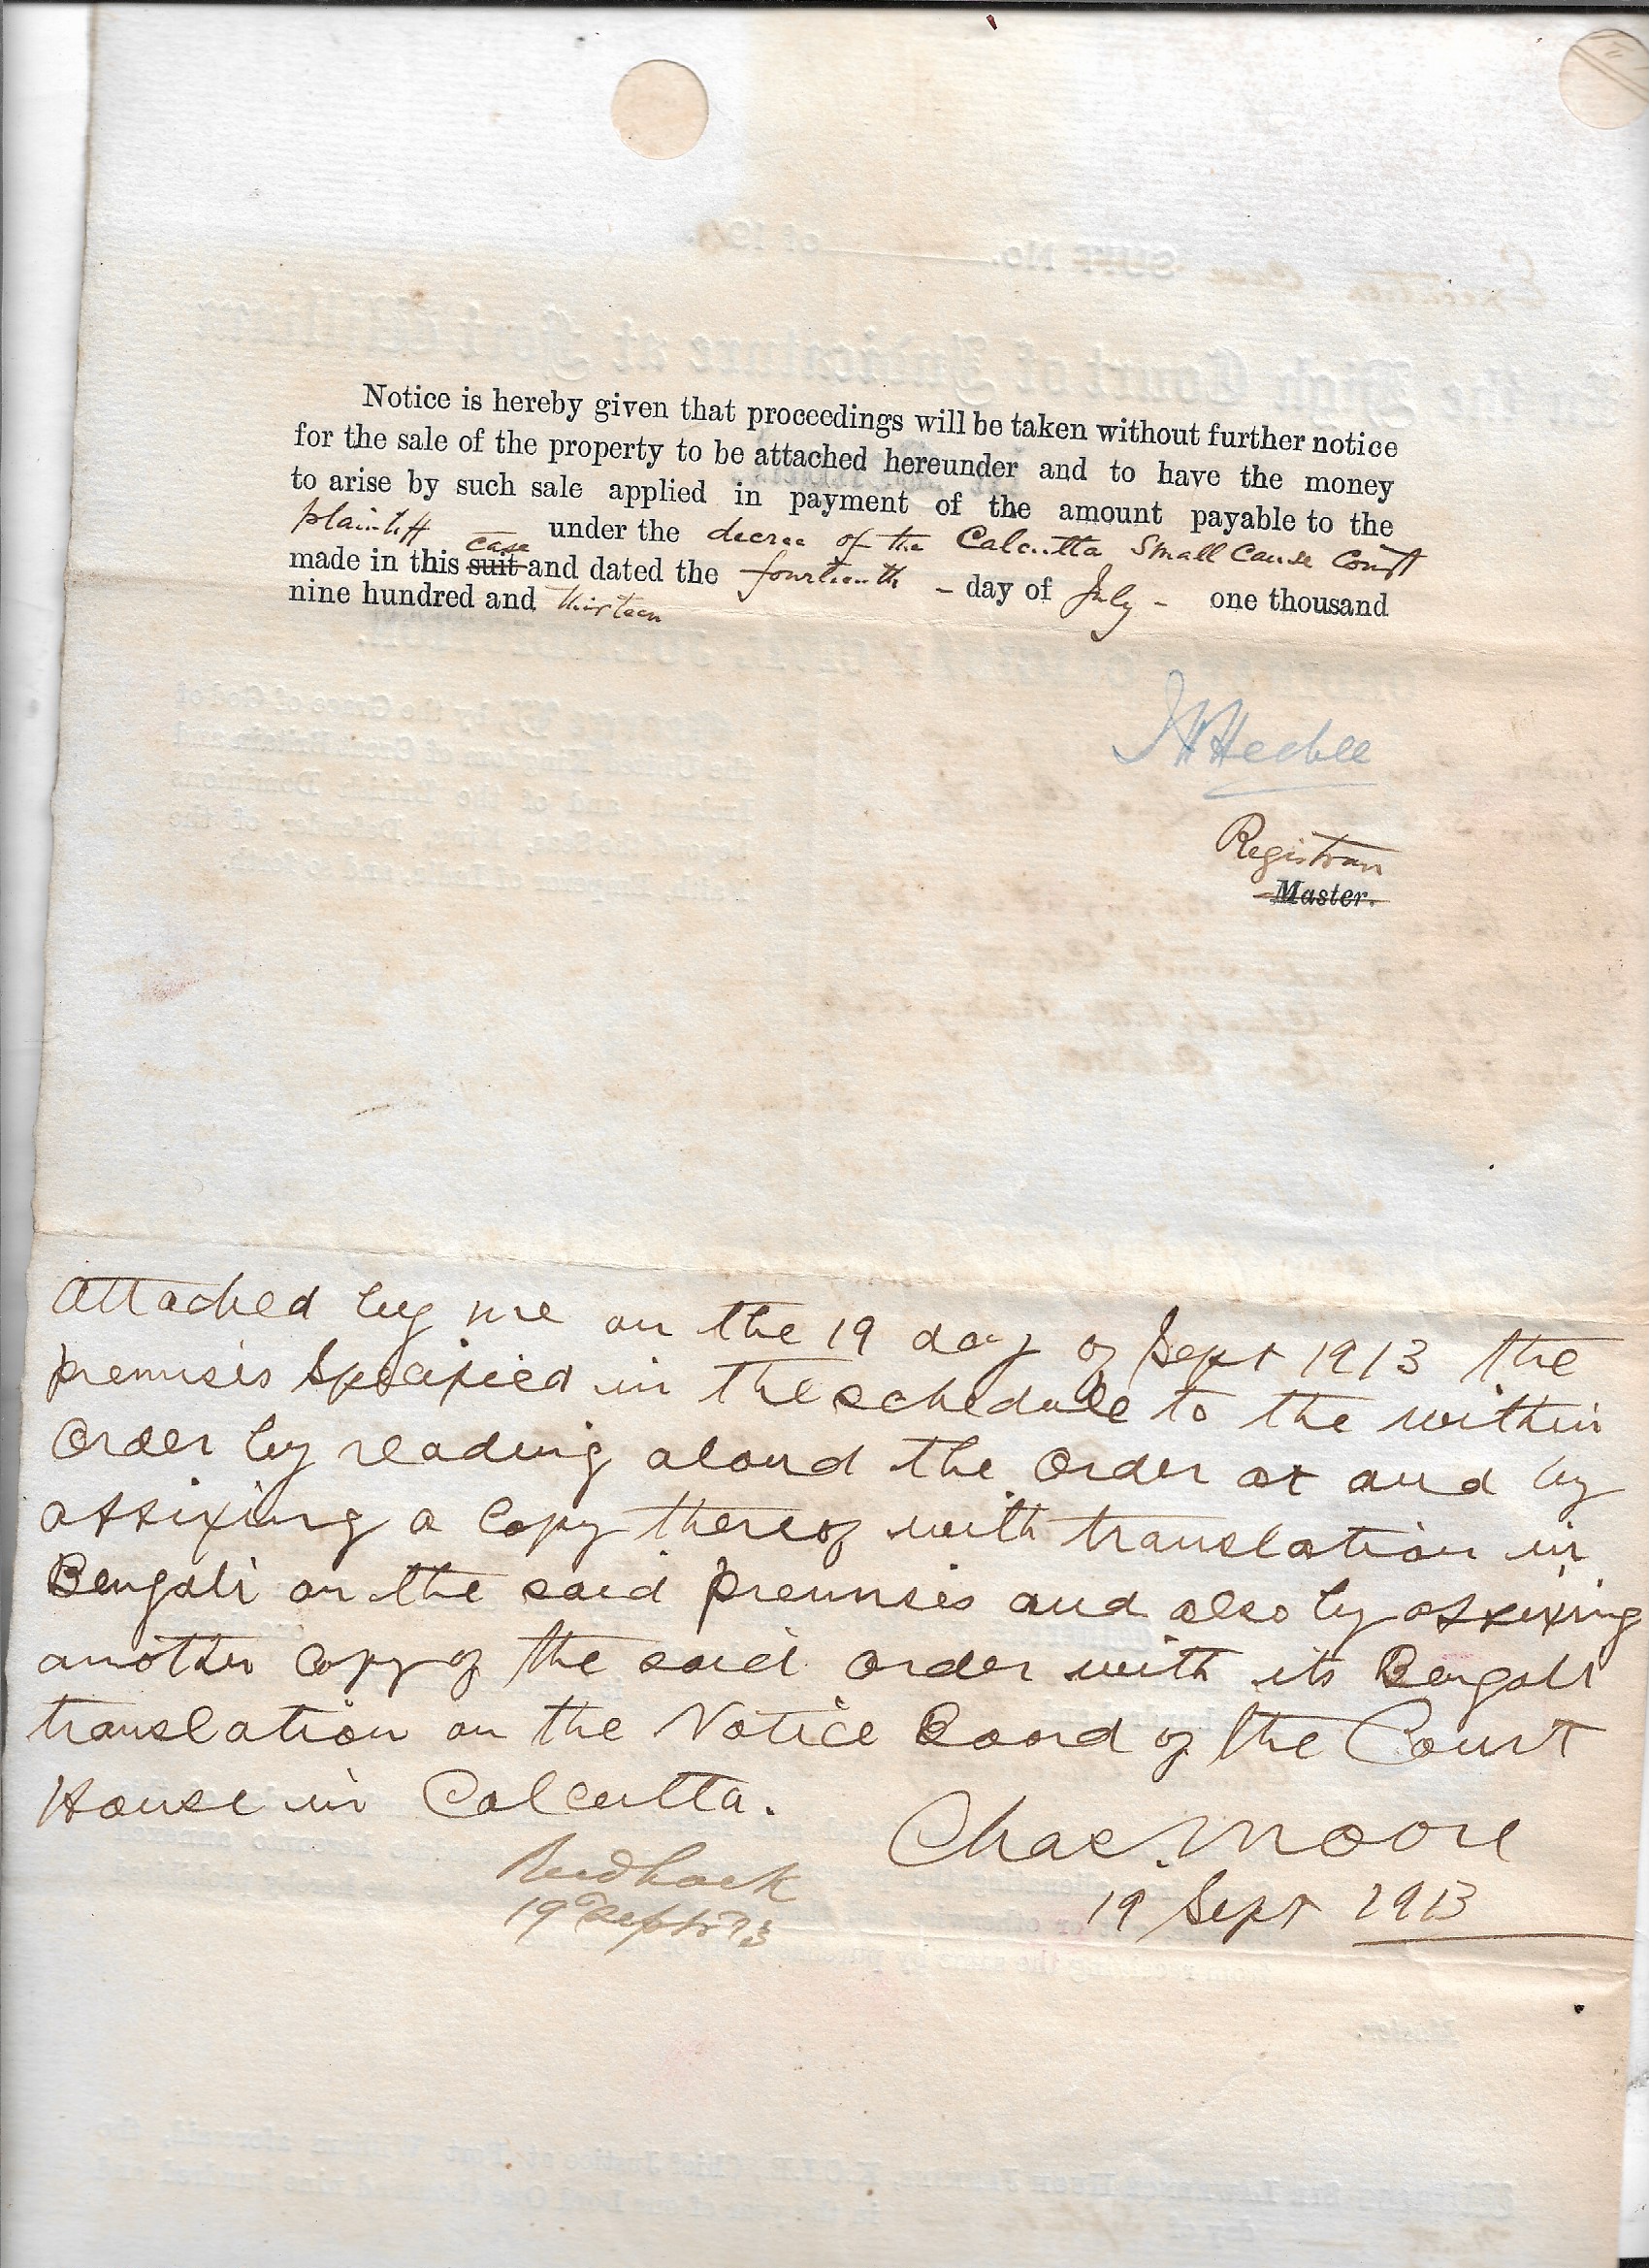 Notice is hereby given that proceedings will be taken without further notice
for the sale of the property to be attached hereunder and to have the money
to arise by such sale applied in payment of the amount payable to the
plaintiff under the decree of the Calcutta Small Cause Court
case
made in this suit and dated the fourteenth - day of July - one thousand
nine hundred and thirteen
Registrar
Master.
Attached by me on the 19 day of Sept 1913 the
premises specified in the schedule to the within
Order by reading aloud the Order at and by
affixing a Copy thereof with translation in
Bengali on the said premises and also by affixing
another Copy of the said order with its Bengali
translation on the Notice Board of the Court
House in Calcutta.
Chas. Moore
19 Sept 1913
19 Sept 13